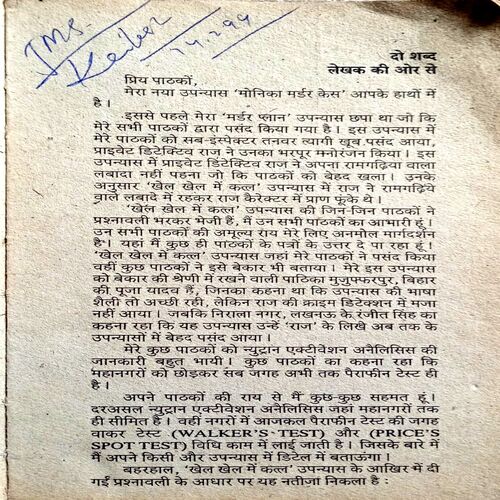 दो शब्द
लेखक की ओर से
प्रिय पाठकों,
मेरा नया उपन्यास 'मोनिका मर्डर केस' आपके हाथों में
है ।
इससे पहले मेरा 'मर्डर प्लान' उपन्यास छपा था जो कि
मेरे सभी पाठकों द्वारा पसंद किया गया है । इस उपन्यास में
मेरे पाठकों को सब-इंस्पेक्टर तनवर त्यागी खूब पसंद आया,
प्राइवेट डिटेक्टिव राज ने उनका भरपूर मनोरंजन किया । इस
उपन्यास में प्राइवेट डिटेक्टिव राज ने अपना रामगढ़िया वाला
लबादा नहीं पहना जो कि पाठकों को बेहद खला । उनके
अनुसार 'खेल खेल में कत्ल' उपन्यास में राज ने रामगढ़िये
वाले लबादे में रहकर राज कैरेक्टर में प्राण फूंके थे ।
'खेल खेल में कत्ल' उपन्यास की जिन-जिन पाठकों ने
प्रश्नावली भरकर भेजी हैं, मैं उन सभी पाठकों का आभारी हूं ।
उन सभी पाठकों की अमूल्य राय मेरे लिए अनमोल मार्गदर्शन
है । यहां मैं कुछ ही पाठकों के पत्रों के उत्तर दे पा रहा हूं ।
'खेल खेल में कत्ल' उपन्यास जहां मेरे पाठकों ने पसंद किया
वहीं कुछ पाठकों ने इसे बेकार भी बताया । मेरे इस उपन्यास
को बेकार की श्रेणी में रखने वाली पाठिका मुजफ्फरपुर, बिहार
की पूजा यादव हैं, जिनका कहना था कि उपन्यास की भाषा
शैली तो अच्छी रही, लेकिन राज की क्राइम डिटेक्शन में मजा
नहीं आया । जबकि निराला नगर, लखनऊ के रंजीत सिंह का
कहना रहा कि यह उपन्यास उन्हें 'राज' के लिखे अब तक के
उपन्यासों में बेहद पसंद आया ।
मेरे कुछ पाठकों को न्यूट्रान एक्टीवेशन अनैलिसिस की
जानकारी बहुत भायी । कुछ पाठकों का कहना रहा कि
महानगरों को छोड़कर सब जगह अभी तक पैराफीन टेस्ट ही
है ।
अपने पाठकों की राय से मैं कुछ-कुछ सहमत हूं ।
दरअसल न्यूट्रान एक्टीवेशन अनैलिसिस जहां महानगरों तक
ही सीमित है । वहीं नगरों में आजकल पैराफीन टेस्ट की जगह
वाकर टेस्ट (WALKER'S TEST) और (PRICE'S
SPOT TEST) विधि काम में लाई जाती है । जिसके बारे में
मैं अपने किसी और उपन्यास में डिटेल में बताऊंगा ।
बहरहाल, 'खेल खेल में कत्ल' उपन्यास के आखिर में दी
गई प्रश्नावली के आधार पर यह नतीजा निकला है :